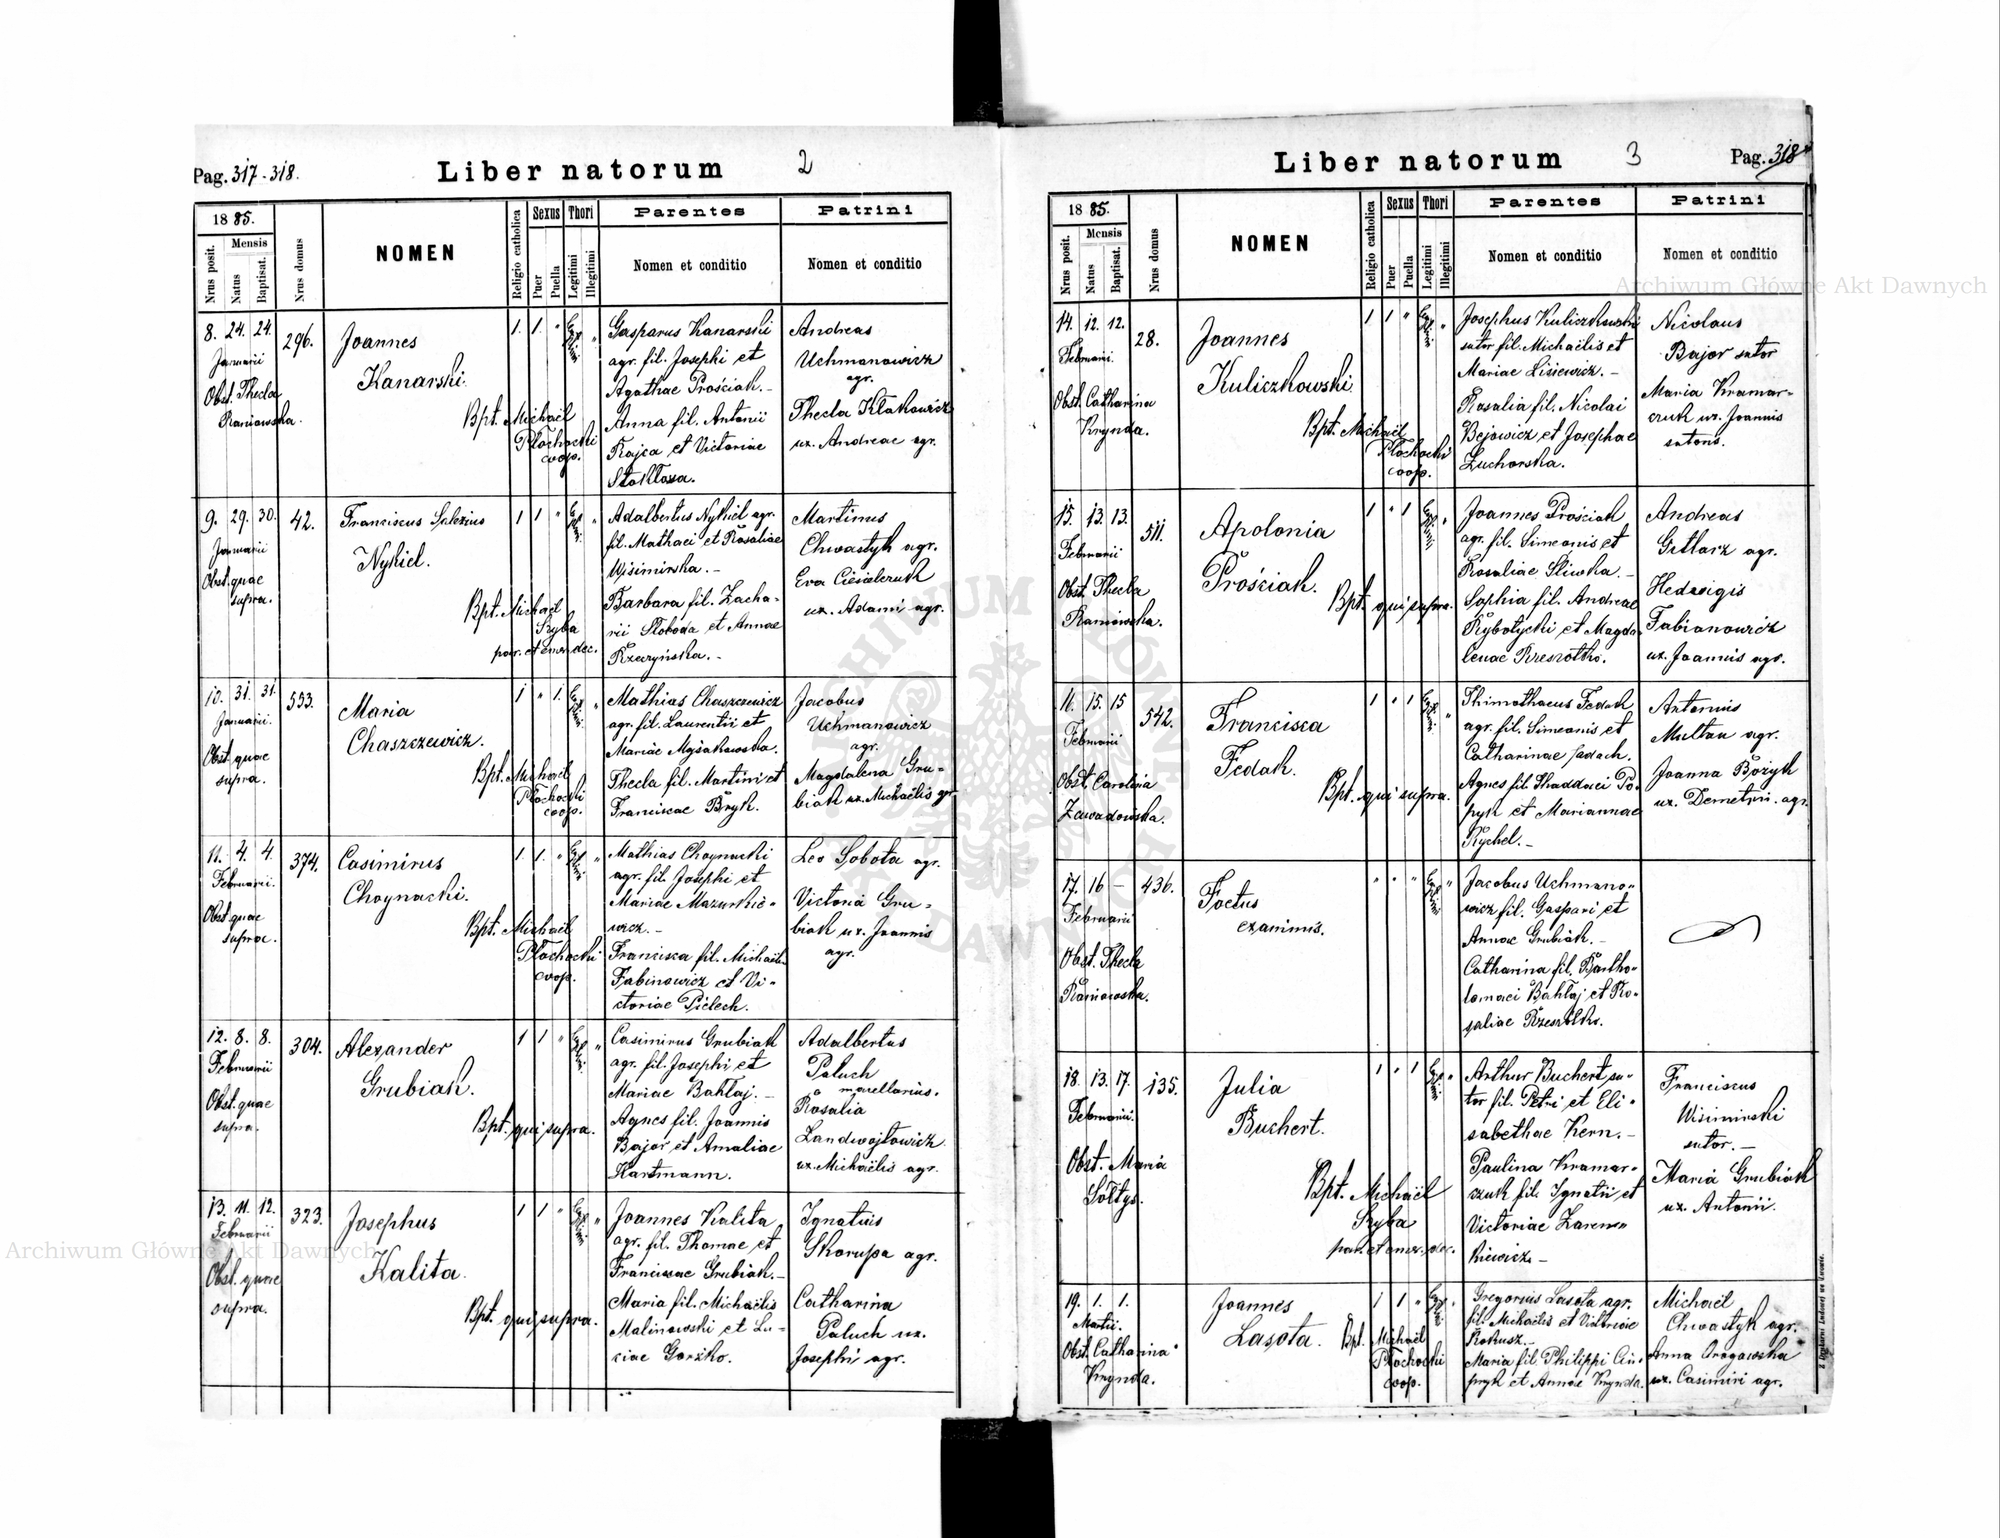 Pag. 317-318.
Liber natorum
2
1885.
Nrus posit.
Mensis
Natus
Baptisat.
Nrus domus
NOMEN
Religio catholica
Sexus
Puer
Puella
Thori
Legitimi
Illegitimi
Parentes
Nomen et conditio
Patrini
Nomen et conditio
8. 24. 24.
Januarii
Obst. Thecla
Raniowska.
296.
Joannes
Kanarski.
Bpt. Michaël
Płochocki
coop.
1. 1. "
Gasparus Kanarski
agr. fil. Josephi et
Agathae Prościak.-
Anna fil. Antonii
Kajca et Victoriae
Stokłossa.
Andreas
Uchmanowicz
agr.
Thecla Kłakowicz
ux. Andreae agr.
9. 29. 30.
Januarii
Obst. quae
supra.
42.
Franciscus Salezius
Nykiel.
Bpt. Michaël
Szyba
par. et emer. dec.
1 1 "
Adalbertus Nykiel agr.
fil. Mathaei et Rosaliae
Wisimirska.-
Barbara fil. Zacha-
rii Słoboda et Annae
Rzeczyńska.-
Martinus
Chwastyk agr.
Eva Cieśelczuk
ux. Adami agr.
10. 31. 31.
Januarii.
Obst. quae
supra.
553.
Maria
Chaszczewicz.
Bpt. Michaël
Płochocki
coop.
1 " 1.
Mathias Chaszczewicz
agr. fil. Laurentii et
Mariae Myśakowska.
Thecla fil. Martini et
Franciscae Bryk.
Jacobus
Uchmanowicz
agr.
Magdalena Gru-
biak ux. Michaëlis agr.
11. 4. 4.
Februarii.
Obst. quae
supra.
374.
Casimirus
Choynacki.
Bpt. Michaël
Płochocki
coop.
1. 1. "
Mathias Choynacki
agr. fil. Josephi et
Mariae Mazurkie-
wicz.-
Francisca fil. Michaëlis
Fabinowicz et Vi-
ctoriae Pielech.
Leo Sobota agr.
Victoria Gru-
biak ux. Joannis
agr.
12. 8. 8.
Februarii
Obst. quae
supra.
304.
Alexander
Grubiak.
Bpt. qui supra.
1 1 "
Casimirus Grubiak
agr. fil. Josephi et
Mariae Bahłaj.-
Agnes fil. Joannis
Bajor et Amaliae
Hartmann.
Adalbertus
Paluch
Rosalia
Landwojtowicz
ux. Michaëlis agr.
13. 11. 12.
Februarii
Obst. quae
supra.
323.
Josephus
Kalita.
Bpt. qui supra.
1 1 "
Joannes Kalita
agr. fil. Thomae et
Franciscae Grubiak.-
Maria fil. Michaëlis
Malinowski et Lu-
ciae Gorżko.
Ignatius
Skorupa agr.
Catharina
Paluch ux.
Josephi agr.
Liber natorum
3
Pag. 318
1885.
Nrus posit.
Mensis
Natus
Baptisat.
Nrus domus
NOMEN
Religio catholica
Sexus
Puer
Puella
Thori
Legitimi
Illegitimi
Parentes
Nomen et conditio
Patrini
Nomen et conditio
14. 12. 12.
Februarii.
Obst. Catharina
Krynda.
28.
Joannes
Kuliczkowski
Bpt. Michaël
Płochocki
coop.
1 1 "
Josephus Kuliczkowski
sutor fil. Michaëlis et
Mariae Lisiewicz.-
Rosalia fil. Nicolai
Bejowicz et Josephae
Zuchorska.
Nicolaus
Bajor sutor
Maria Kramar-
czuk ux. Joannis
sutoris.
15. 13. 13.
Februarii
Obst. Thecla
Raniowska.
511.
Apolonia
Prościak.
Bpt. qui supra.
1 " 1
Joannes Prościak
agr. fil. Simeonis et
Rosaliae Śliwka.-
Sophia fil. Andreae
Rybotycki et Magda-
lenae Rzeszótko.
Andreas
Gitlarz agr.
Hedwigis
Fabianowicz
ux. Joannis agr.
16. 15. 15
Februarii
Obst. Carolina
Zawadowska.
542.
Francisca
Fedak.
Bpt. qui supra.
1 " 1
Thimothaeus Fedak
agr. fil. Simeonis et
Catharinae Sadach.
Agnes fil. Thaddaei Po-
pyk et Mariannae
Rychel.-
Antonius
Multan agr.
Joanna Bożyk
ux. Demetrii. agr.
17. 16 -
Februarii
Obst. Thecla
Raniowska.
436.
Foetus
exanimis.
" " "
Jacobus Uchmano-
wicz fil. Gaspari et
Annae Grubiak.-
Catharina fil. Bartho-
lomaei Bahłaj et Ro-
saliae Rzeszótko.
18. 13. 17.
Februarii.
Obst. Maria
Sołtys.
135.
Julia
Buchert.
Bpt. Michaël
Szyba
par. et emer. dec.
1 " 1
Arthur Buchert su-
tor fil. Petri et Eli-
sabethae Kern.-
Paulina Kramar-
czuk fil. Ignatii et
Victoriae Zarem-
kiewicz.-
Franciscus
Wisimirski
sutor.-
Maria Grubiak
ux. Antonii.
19. 1. 1.
Martii.
Obst. Catharina
Krynda.
Joannes
Lasota.
Bpt. Michaël
Płochocki
coop.
1 1 "
Gregorius Lasota agr.
fil. Michaëlis et Victoriae
Rokusz.-
Maria fil. Philippi Ciu-
pryk et Annae Krynda.
Michaël
Chwastyk agr.
Anna Orogowska
ux. Casimiri agr.
Z Drukarni Ludowej we Lwowie.
Archiwum Główne Akt Dawnych
Archiwum Główne Akt Dawnych
ARCHIWUM GŁÓWNE AKT DAWNYCH